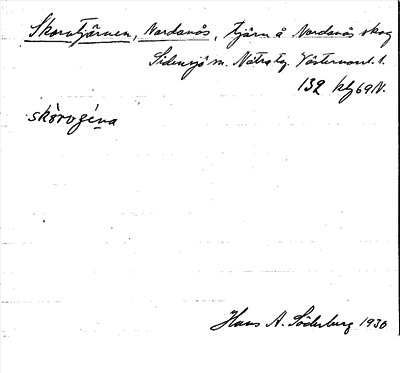 Skorotjärnen, Nordanås, tjärn å Nordanås skog
Sidensjö sn. Nätra tg. Västernorrl. l.
132 kbg 69 N.
skòrogéna
Hans A. Söderberg 1930